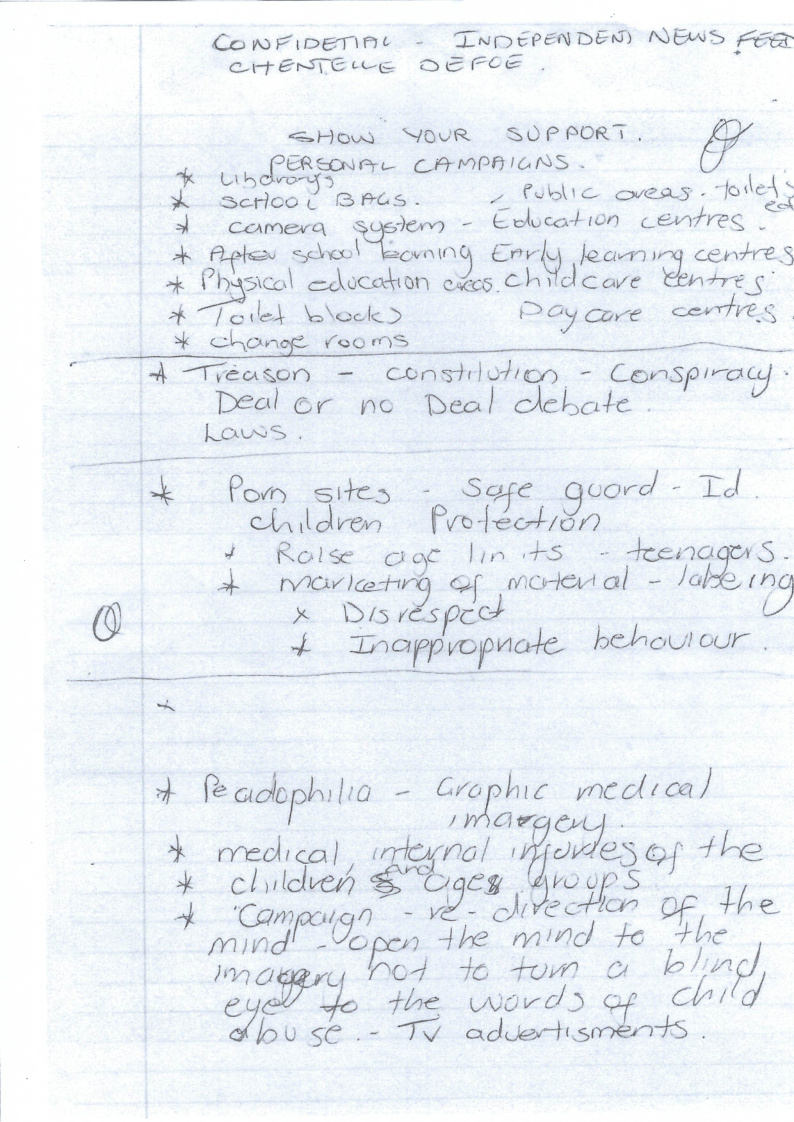 CONFIDETIAL - INDEPENDENT NEWS FEED
CHENTELLE DEFOE.
SHOW YOUR SUPPORT.
PERSONAL CAMPAIGNS.
* Liborarys
* SCHOOL BAGS. - Public areas. toilets
* camera system - Education centres.
* After school learning Early learning centres
* Physical education areas. Childcare centres
* Toilet blocks Day care centres.
* change rooms
* Treason - constilution - Conspiracy.
Deal or no Deal debate.
Laws.
* Porn sites - Safe guard - Id.
children Protection
* Raise age limits - teenagers.
* marketing of material - labeing
x Disrespect
* Inappropriate behaviour.
* Peadophilia - Graphic medical
imargery.
* medical, internal injuries of the
* children and ages groups
* 'Campaign - re-direction of the
mind' - open the mind to the
imagery not to turn a blind
eye to the words of child
abuse. - TV advertisments.